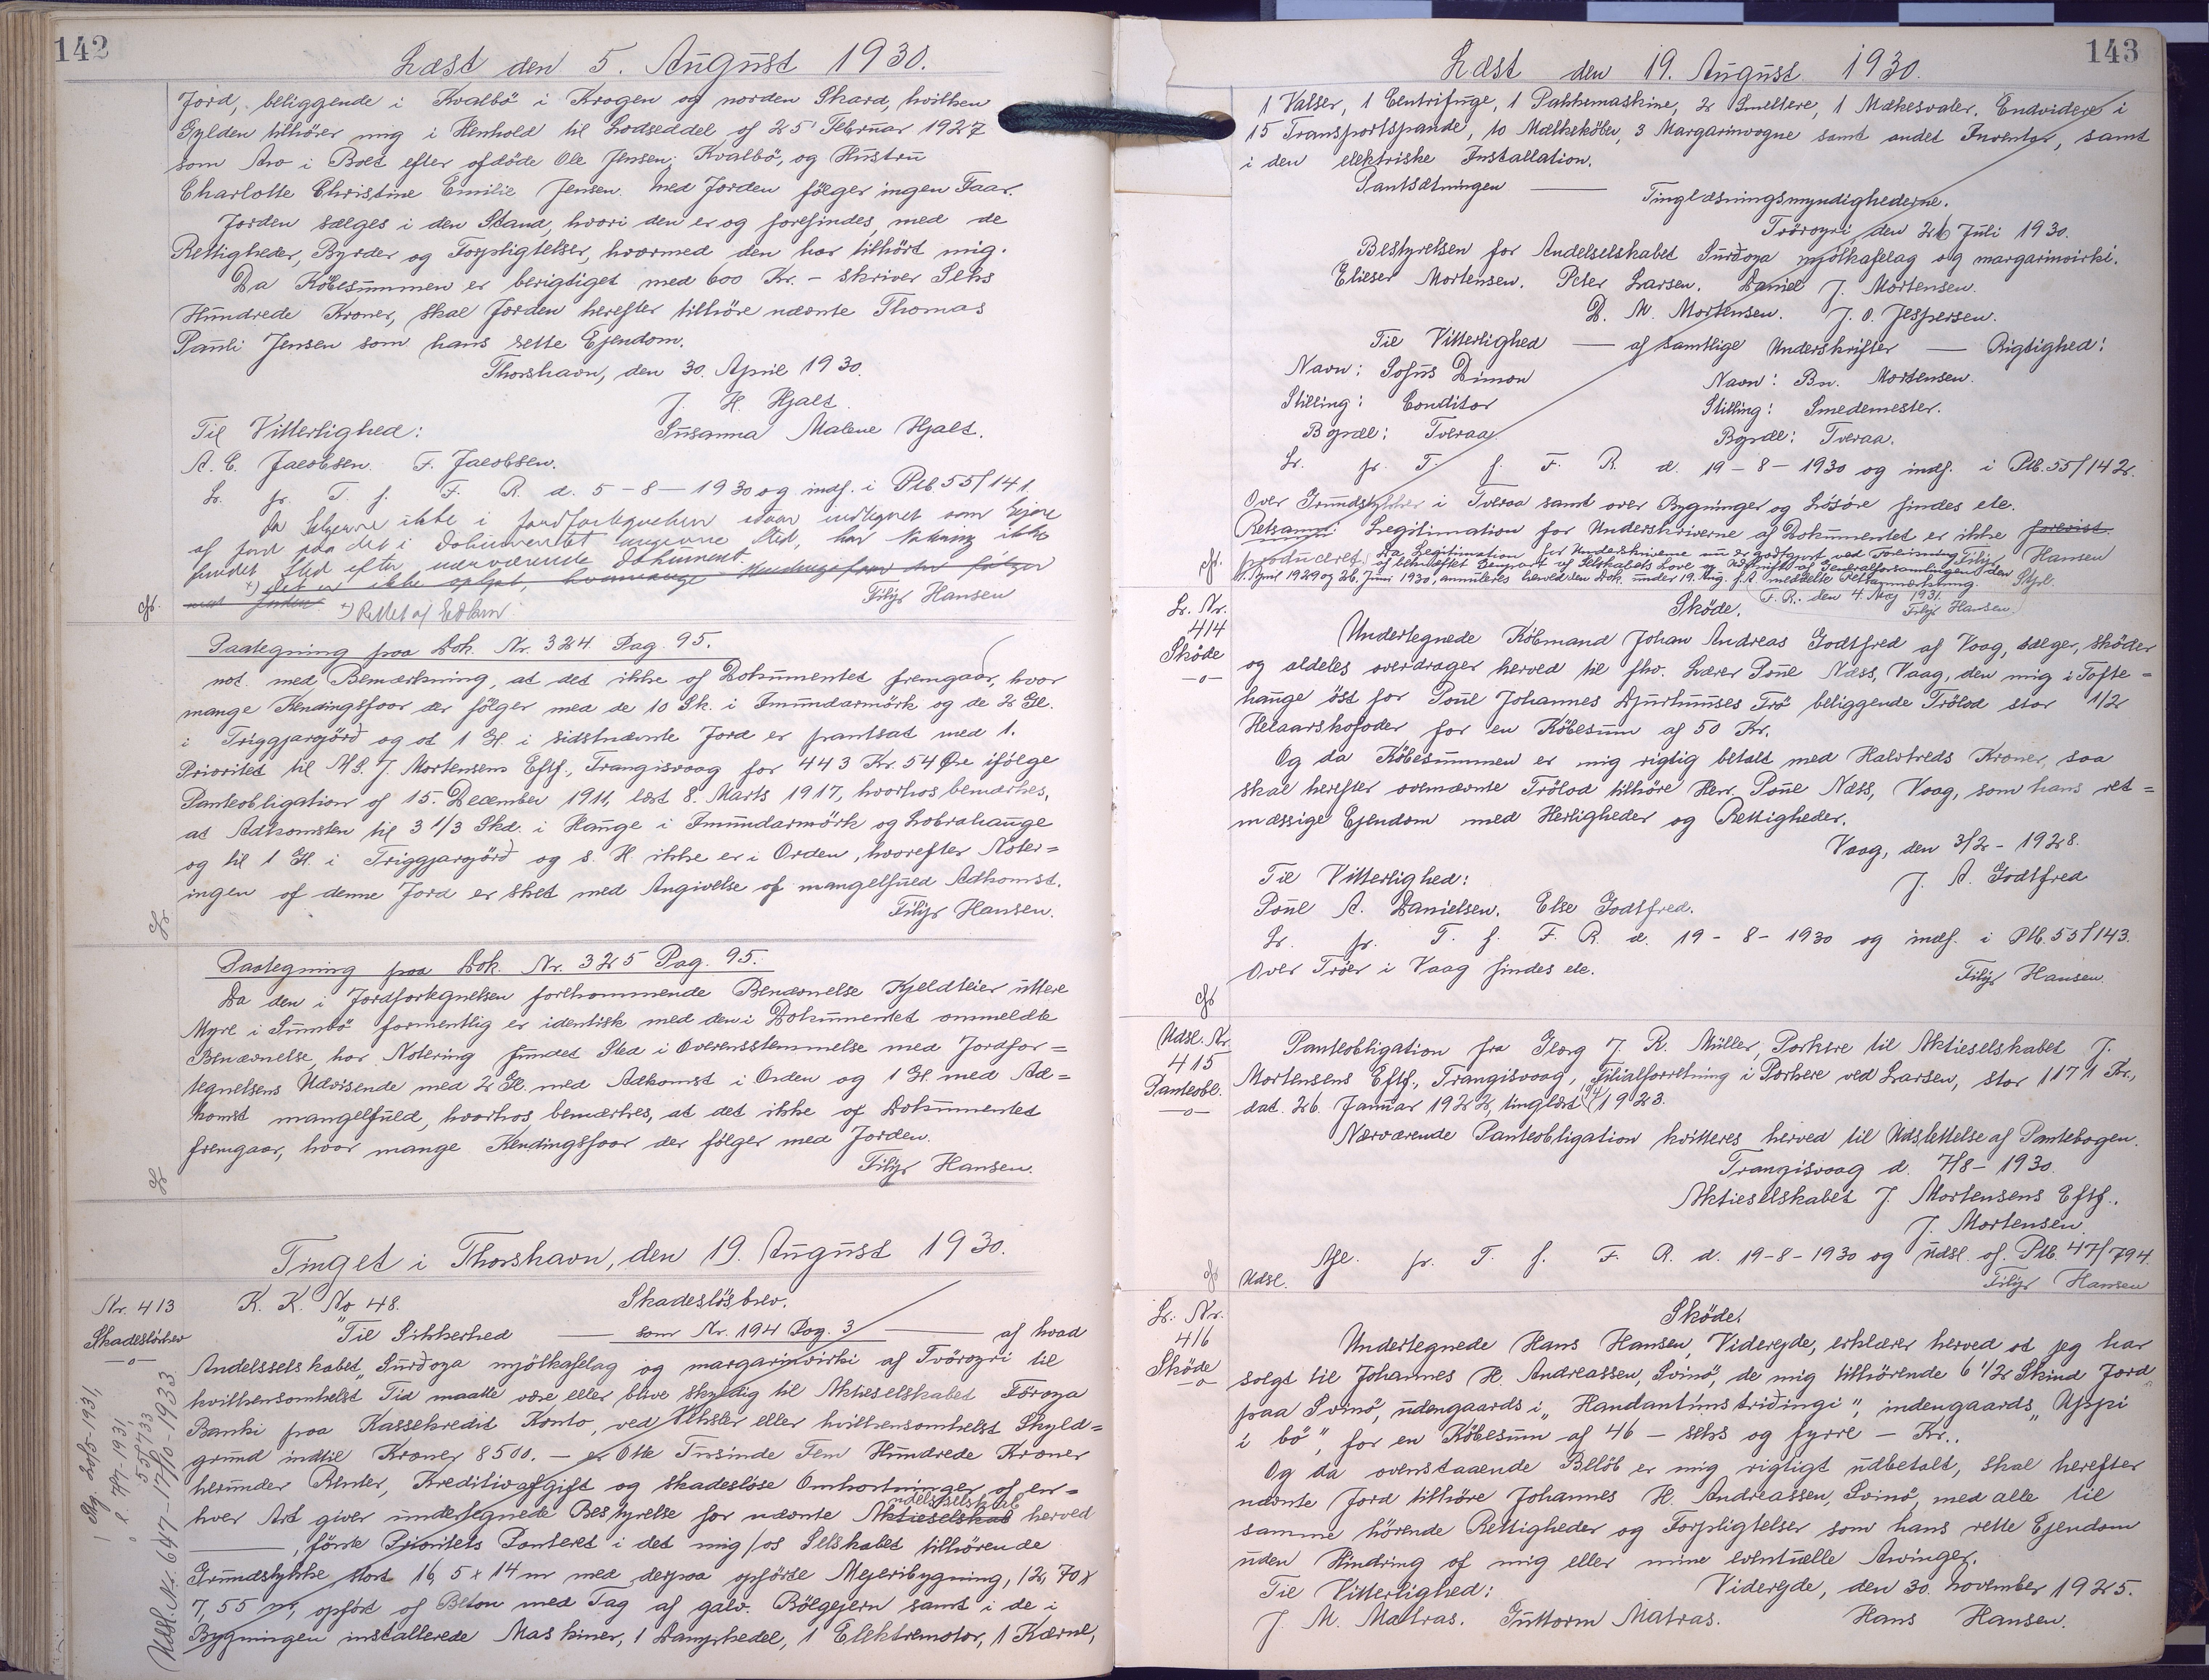 142
Læst den 5. August 1930.
Jord, beliggende i Kvalbö i Krogen og norden Skard, hvilken
Gylden tilhører mig i Henhold til Lodseddel af 25' Februar 1927
som Arv i Boet efter afdöde Ole Jensen, Kvalbö, og Hustru
Charlotte Christine Emilie Jensen. Med Jorden fölger ingen Faar.
Jorden sælges i den Stand, hvori den er og forefindes, med de
Rettigheder, Byrder og Forpligtelser, hvormed den har tilhört mig.
Da Köbesummen er berigtiget med 600 Kr. - skriver Seks
Hundrede Kroner, skal Jorden herefter tilhöre nævnte Thomas
Pauli Jensen som hans rette Ejendom.
Thorshavn, den 30. April 1930.
J. H. Hjalt.
Til Vitterlighed: Susanna Malene Hjalt.
A. C. Jacobsen. F. Jacobsen.
Lr. pr. T. f. F. R. d. 5-8-1930 og indf. i Ptb. 55/141.
Da Sælgerne ikke i Jordfortegnelsen staar indtegnet som Ejere
af Jord paa det i Dokumentet angivne Sted, har Notering ikke
fundet Sted efter nærværende Dokument.
*) Det er ikke oplyst, hvormange Kendingsfaar der fölger
med Jorden *) Rettet af Embedet Filip Hansen
Paategning paa Dok. Nr. 324. Pag. 95.
not. med Bemærkning, at det ikke af Dokumentet fremgaar, hvor
mange Kendingsfaar der fölger med de 10 Sk. i Innundarmörk og de 2 Gl.
i Triggjargjörð og at 1 Gl. i sidstnævnte Jord er pantsat med 1.
Prioritet til A/S. J. Mortensens Eftf., Trangisvaag for 443 Kr. 54 Øre ifölge
Panteobligation af 15. December 1911, læst 8. Marts 1917, hvorhos bemærkes,
at Adkomsten til 3 1/3 Skd. i Hauge i Innundarmörk og Lobrahauge
og til 1 Gl. i Triggjargjörð og s. H. ikke er i Orden, hvorefter Noter=
ingen af denne Jord er sket med Angivelse af mangelfuld Adkomst.
Lr. Filip Hansen.
Paategning paa Dok. Nr. 325 Pag. 95.
Da den i Jordfortegnelsen forekommende Benævnelse Kjeldteier uttere
Myre i Sumbö formentlig er identisk med den i Dokumentet ommeldte
Benævnelse, har Notering fundet Sted i Overensstemmelse med Jordfor=
tegnelsens Udvisende med 2 Gl. med Adkomst i Orden og 1 Gl. med Ad=
komst mangelfuld, hvorhos bemærkes, at det ikke af Dokumentet
fremgaar, hvor mange Kendingsfaar der fölger med Jorden.
Lr. Filip Hansen.
Tinget i Thorshavn, den 19. August 1930.
Nr. 413 K. K. No 48. Skadeslösbrev.
Skadeslösbrev Til Sikkerhed — som Nr. 194 Pag. 3 — af hvad
Andelsselskabet "Surðoya mjólkafelag og margarinvirki af Tvöroyri til
hvilkensomhelst Tid maatte være eller blive skyldig til Aktieselskabet Föroya
Banki paa Kassekredit Konto, ved Veksler eller hvilkensomhelst Skyld=
grund indtil Kroner 8500. — er Otte Tusinde Fem Hundrede Kroner
herunder Renter, Kreditivafgift og skadeslöse Omkostninger af en=
hver Art giver undertegnede Bestyrelse for nævnte Aktieselskab andelsselskab herved
—, förste Prioritets Panteret i det mig/os Selskabet tilhörende
Grundstykke stort 16,5 x 14 m med derpaa opförte Mejeribygning, 12,70 x
7,55 m, opfört af Beton med Tag af galv. Bölgejern samt i de i
Bygningen installerede Maskiner, 1 Dampkedel, 1 Elektromotor, 1 Kærne,
Udsl. Nr. 647-17/10-1933
55/733
143
Læst den 19. August 1930.
1 Valser, 1 Centrifuge, 1 Pakkemaskine, 2 Smeltere, 1 Mækesvaler. Endvidere i
15 Transportspande, 10 Mælkeköber, 3 Margarinvogne samt andet Inventar, samt
i den elektriske Installation.
Pantsætningen — Tinglæsningsmyndighederne.
Tvöroyri, den 26 Juli 1930.
Bestyrelsen for Andelselskabet Surðoya mjólkafelag og margarinvirki.
Elieser Mortensen. Peter Larsen. Daniel J. Mortensen.
D. M. Mortensen. J. O. Jespersen.
Til Vitterlighed — af samtlige Underskrifter — Rigtighed:
Navn: Sofus Dimon Navn: Bn. Mortensen.
Stilling: Conditor Stilling: Smedemester.
Bopæl: Tveraa Bopæl: Tveraa.
Lr. pr. T. f. F. R. d. 19-8-1930 og indf. i Ptb. 55/142.
Over Grundstykker i Tveraa samt over Bygninger og Lösöre findes ele.
Retsanm: Legitimation for Underskriverne af Dokumentet er ikke forevist
produceret. Filip Hansen
Da Legitimation for Underskriverne nu er godtgjort ved Forevisning
af bekræftet Genpart af Selskabets Love og Udskrift af Generalforsamlingen den
11. April 1929 og 26. Juni 1930, annulleres herved den Dok. under 19. Aug. f. A. meddelte Retsanmærkning.
F. R. den 4. Maj 1931. Filip Hansen.
Lr. Nr. 414 Sköde
Sköde.
Undertegnede Köbmand Johan Andreas Godtfred af Vaag, sælger, sköder
og aldeles overdrager herved til fhv. Lærer Poul Næss, Vaag, den mig i Tofte=
hauge öst for Poul Johannes Djurhuuses Trö beliggende Trölod stor 1/2
Helaarskofoder for en Köbesum af 50 Kr.
Og da Köbesummen er mig rigtig betalt med Halvtreds Kroner, saa
skal herefter ovennævnte Trölod tilhöre Herr Poul Næss, Vaag, som hans ret=
mæssige Ejendom med Herligheder og Rettigheder.
Vaag, den 3/2 - 1928.
Til Vitterlighed: J. A. Godtfred
Poul A. Danielsen. Else Godtfred.
Lr. pr. T. f. F. R. d. 19-8-1930 og indf. i Ptb. 55/143.
Over Tröer i Vaag findes ele. Filip Hansen.
Udsl. Nr. 415 Panteobl.
Panteobligation fra Georg J. R. Müller, Porkere til Aktieselskabet J.
Mortensens Eftf., Trangisvaag, Filialforretning i Porkere ved Larsen, stor 1171 Kr.,
dat. 26. Januar 1922, tinglæst 1923.
Nærværende Panteobligation kvitteres herved til Udslettelse af Pantebogen.
Trangisvaag d. 7/8 - 1930.
Aktieselskabet J. Mortensens Eftf.,
J. Mortensen
Afl. pr. T. f. F. R. d. 19-8-1930 og udsl. af Ptb. 47/794.
Udsl. Filip Hansen
Lr. Nr. 416 Sköde
Sköde.
Undertegnede Hans Hansen, Viderejde, erklærer herved at jeg har
solgt til Johannes H. Andreassen, Svinö, de mig tilhörende 6 1/2 Skind Jord
paa Svinö, udengaards i "Handantímstriðingi", indengaards "Uppi
i bö", for en Köbesum af 46 — seks og fyrre — Kr..
Og da ovenstaaende Belöb er mig rigtigt udbetalt, skal herefter
nævnte Jord tilhöre Johannes H. Andreassen, Svinö, med alle til
samme hörende Rettigheder og Forpligtelser som hans rette Ejendom
uden Hindring af mig eller mine eventuelle Arvinger.
Til Vitterlighed: Viderejde, den 30. November 1925.
J. M. Matras. Guttorm Matras. Hans Hansen.